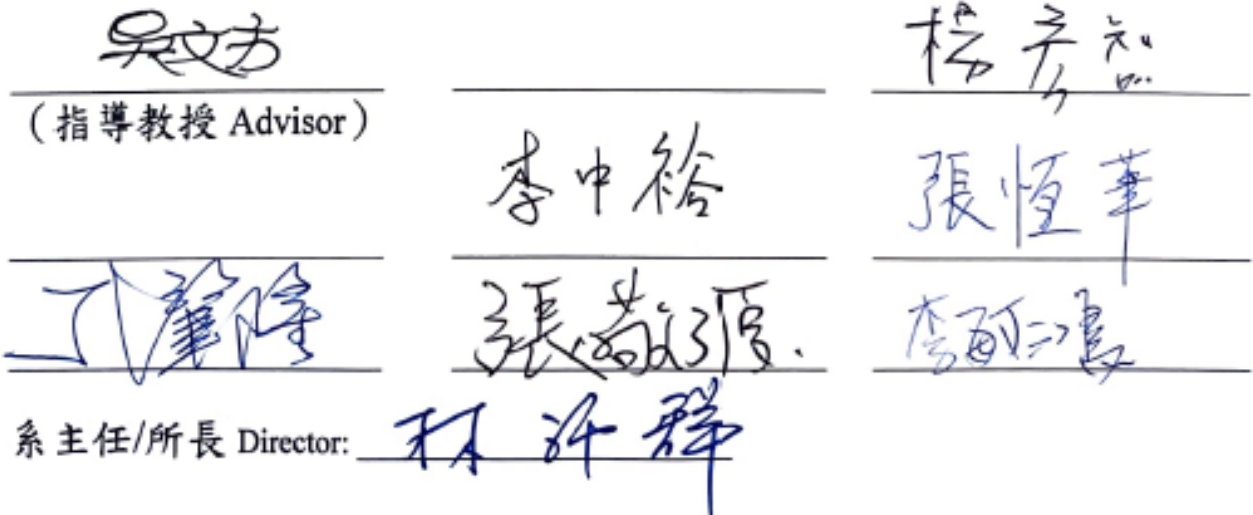 吳文方 楊彥智
(指導教授 Advisor)
李中裕 張恆華
張敬源
系主任/所長 Director: 林沂群